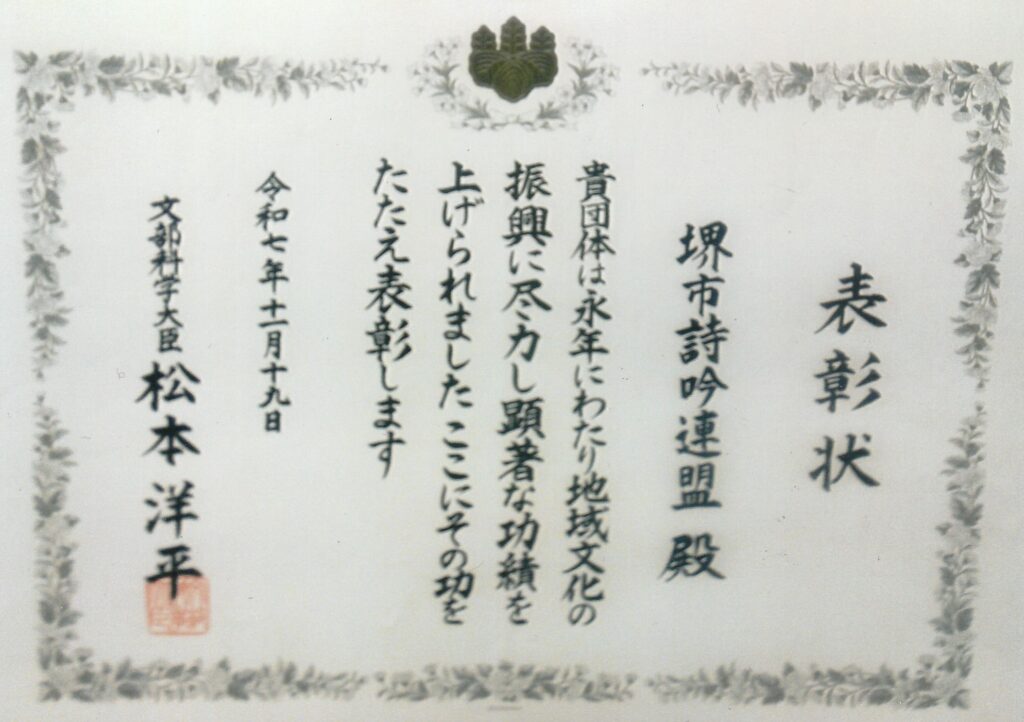 表彰状
堺市詩吟連盟 殿
貴団体は永年にわたり地域文化の
振興に尽力し顕著な功績を
上げられました ここにその功を
たたえ表彰します
令和七年十一月十九日
文部科学大臣 松本洋平